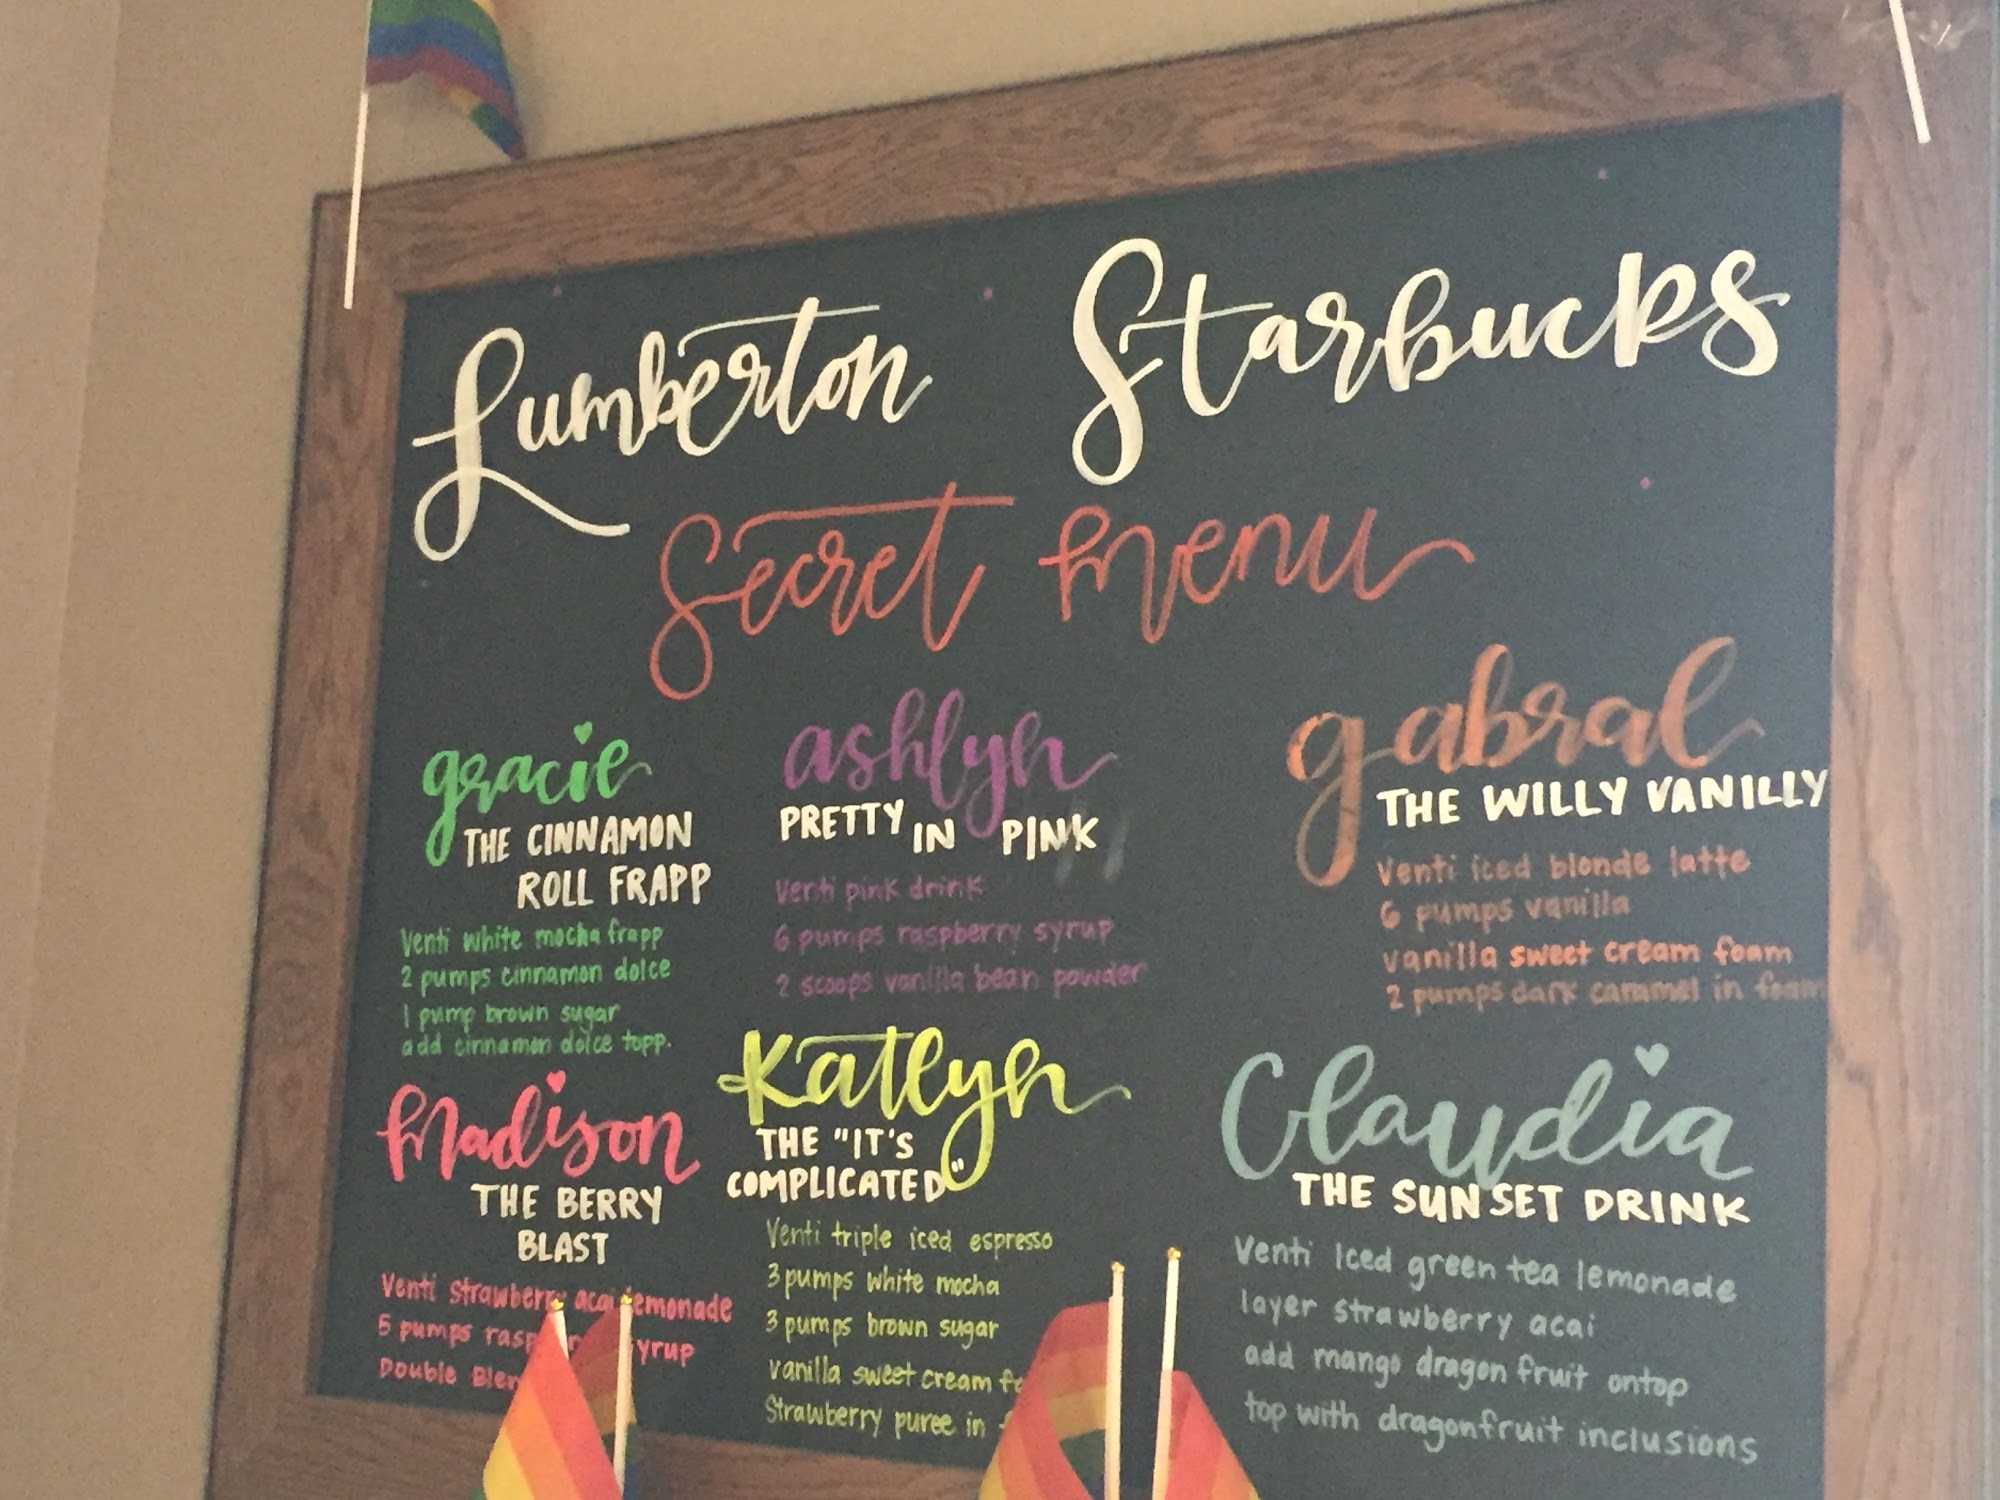 Lumberton Starbucks
Secret Menu
gracie
THE CINNAMON
ROLL FRAPP
Venti white mocha frapp
2 pumps cinnamon dolce
1 pump brown sugar
add cinnamon dolce topp.
ashlyn
PRETTY IN PINK
Venti pink drink
6 pumps raspberry syrup
2 scoops vanilla bean powder
gabral
THE WILLY VANILLY
Venti iced blonde latte
6 pumps vanilla
vanilla sweet cream foam
2 pumps dark caramel in foam
Madison
THE BERRY
BLAST
Venti Strawberry acai lemonade
5 pumps
Double
Katlyn
THE "IT'S
COMPLICATED"
Venti triple iced espresso
3 pumps white mocha
3 pumps brown sugar
vanilla sweet cream
Strawberry puree in
Claudia
THE SUNSET DRINK
Venti Iced green tea lemonade
layer strawberry acai
add mango dragon fruit ontop
top with dragonfruit inclusions